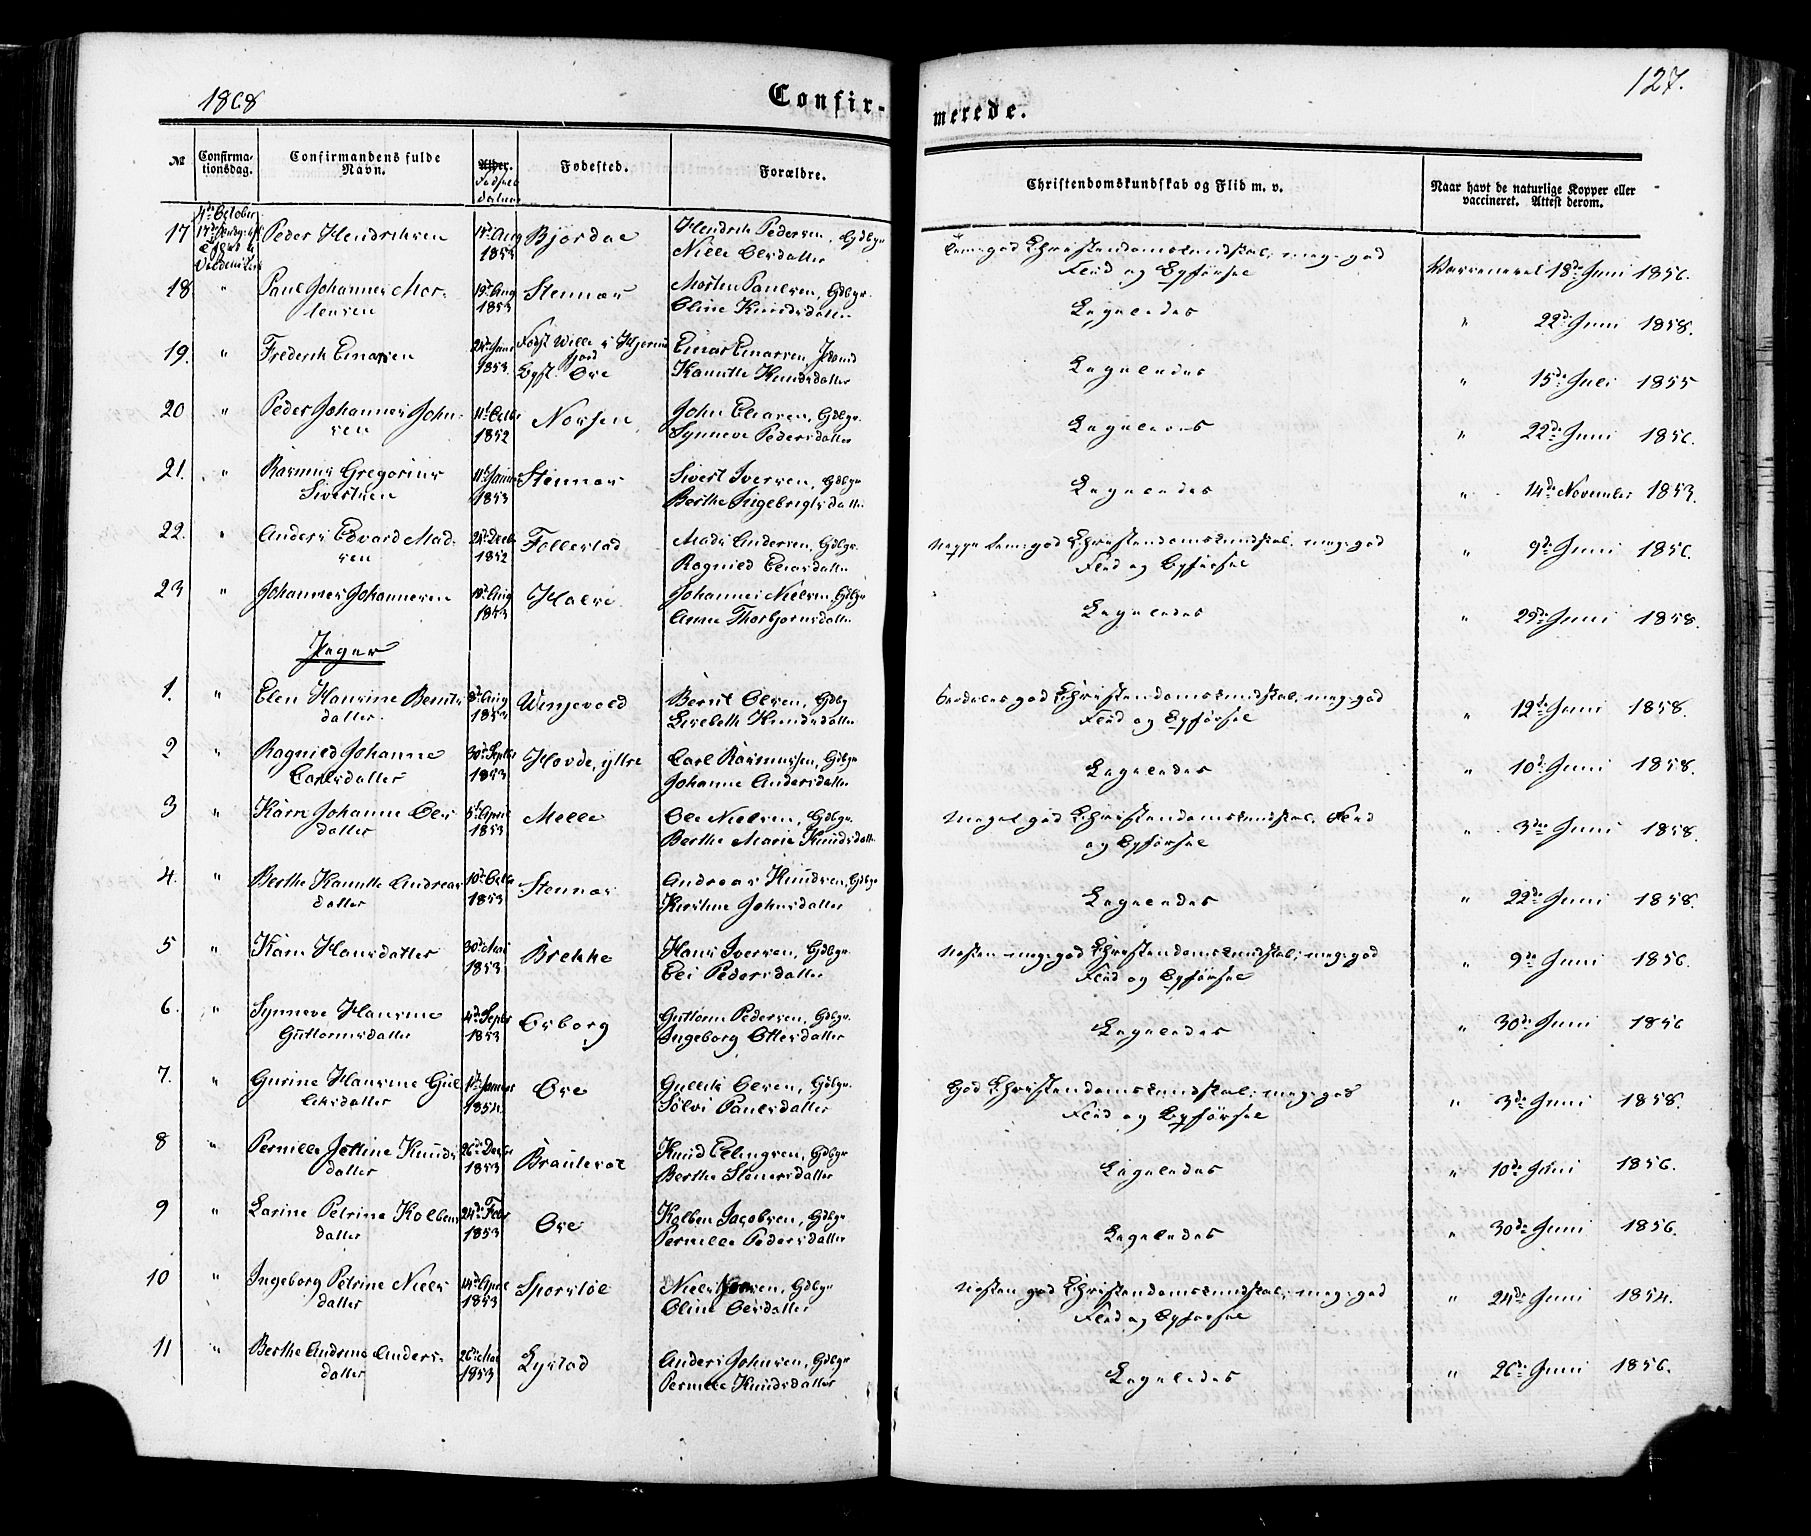 1868
Confir-
merede.
127.
№
Confirma-
tionsdag.
Confirmandens fulde
Navn.
Alder.
Fødsels
datum
Fødested.
Forældre.
Christendomskundskab og Flid m. v.
Naar havt de naturlige Kopper eller
vaccineret. Attest derom.
4de October
17
Peder Hendriksen
1853
Bjørdal
Hendrik Pedersen, Gdbgr
Nille Olsdatter
Christendomskundskab; meg: god
Flid og Opførsel
Vaccineret 18de Juni 1856.
18
"
Paul Johannes Mor-
tensen
1853
Stennæs
Morten Paulsen, Gdbgr.
Oline Knudsdatter
Ligeledes
" 22de Juni 1858.
19.
"
Frederik Einarsen
1853.
Født Wille i
Opf. Ose
Einar Einarsen,
Kanutte Knudsdatter
Ligeledes
" 15de Juli 1855
20
"
Peder Johannes John-
sen
1852
John Eliasen, Gdbgr.
Synneve Pedersdatter
Ligeledes
" 22de Juni 1856.
21.
"
Rasmus Gregorius
Sivertsen
1853
Stennæs
Sivert Iversen, Gdbgr
Berthe Ingebrigtsdatter
Ligeledes
" 14de November 1853.
22.
"
Anders Edvard Mad-
sen
1852
Follestad
Mads Andersen, Gdbgr.
Ragnild Eliasdatter
Neppe temm: god Christendomskundskab; meg: god
Flid og Opførsel
" 9de Juni 1856.
23
"
Johannes Johannesen
1853
Johannes Nielsen, Gdbgr
Anne Thorbjørnsdatter
Ligeledes
" 29de Juni 1858.
Piger
1.
"
Elen Hansine Bernts-
datter.
Wingevold
Bernt Olsen, Gdbg
Lisebeth Knudsdatter
Særdeles god Christendomskundskab, meg: god
Flid og Opførsel
" 12de Juni 1858.
2
"
Ragnild Johanne
Carlsdatter
30de Septbr
1853
Hovde, ytre
Carl Rasmussen, Gdbgr
Johanne Andersdatter
Ligeledes
" 10de Juni 1858.
3
"
Karn Johanne Ols-
datter
5te April
1853
Melle
Ole Nielsen, Gdbgr.
Berthe Marie Knudsdatter
Meget god Christendomskundskab, Flid
og Opførsel
" 3die Juni 1858.
4.
"
Berthe Kanutte Andreas-
datter
10de Octbr
1853
Stennæs
Andreas Knudsen, Gdbgr
Kirstine Johnsdatter
Ligeledes
" 22de Juni 1858.
5
"
Karn Hansdatter
30de Mai
1853
Brekke
Hans Iversen, Gdbgr
Eli Pedersdatter
Næsten meg: god Christendomskundskab; meg: god
Flid og Opførsel
" 9de Juni 1856.
6.
"
Synneve Hansine
Guttormsdatter
4de Septbr
1853
Osborg
Guttorm Pedersen, Gdbgr.
Ingeborg Ottesdatter
Ligeledes
" 30de Juni 1856
7.
"
Gurine Hansine Gul-
liksdatter
1854.
Ose
Gullik Olsen, Gdbgr.
Sølvi Paulsdatter
God Christendomskundskab; meg: god
Flid og Opførsel
" 3die Juni 1858.
8
"
Pernille Jettine Knuds-
datter
26de Decbr
1853
Brautesæt
Knud Ellingsen, Gdbgr
Berthe Steinersdatter
Ligeledes
" 10de Juni 1856.
9
"
Larine Petrine Kolbens-
datter
24de Febr
1853
Ose
Kolben Jacobsen, Gdbgr
Pernille Pedersdatter
Ligeledes
" 30de Juni 1856.
10
"
Ingeborg Petrine Niels-
datter
14de April
1853
Sporstøl
Niels Gdbgr
Oline Olsdatter
Næsten god Christendomskundskab; meg: god
Flid og Opførsel
" 24de Juni 1854.
11
"
Berthe Andrine Anders-
datter
26de Mai
1853
Lystad
Anders Johnsen, Gdbgr
Pernille Knudsdatter
Ligeledes
" 26de Juni 1856.